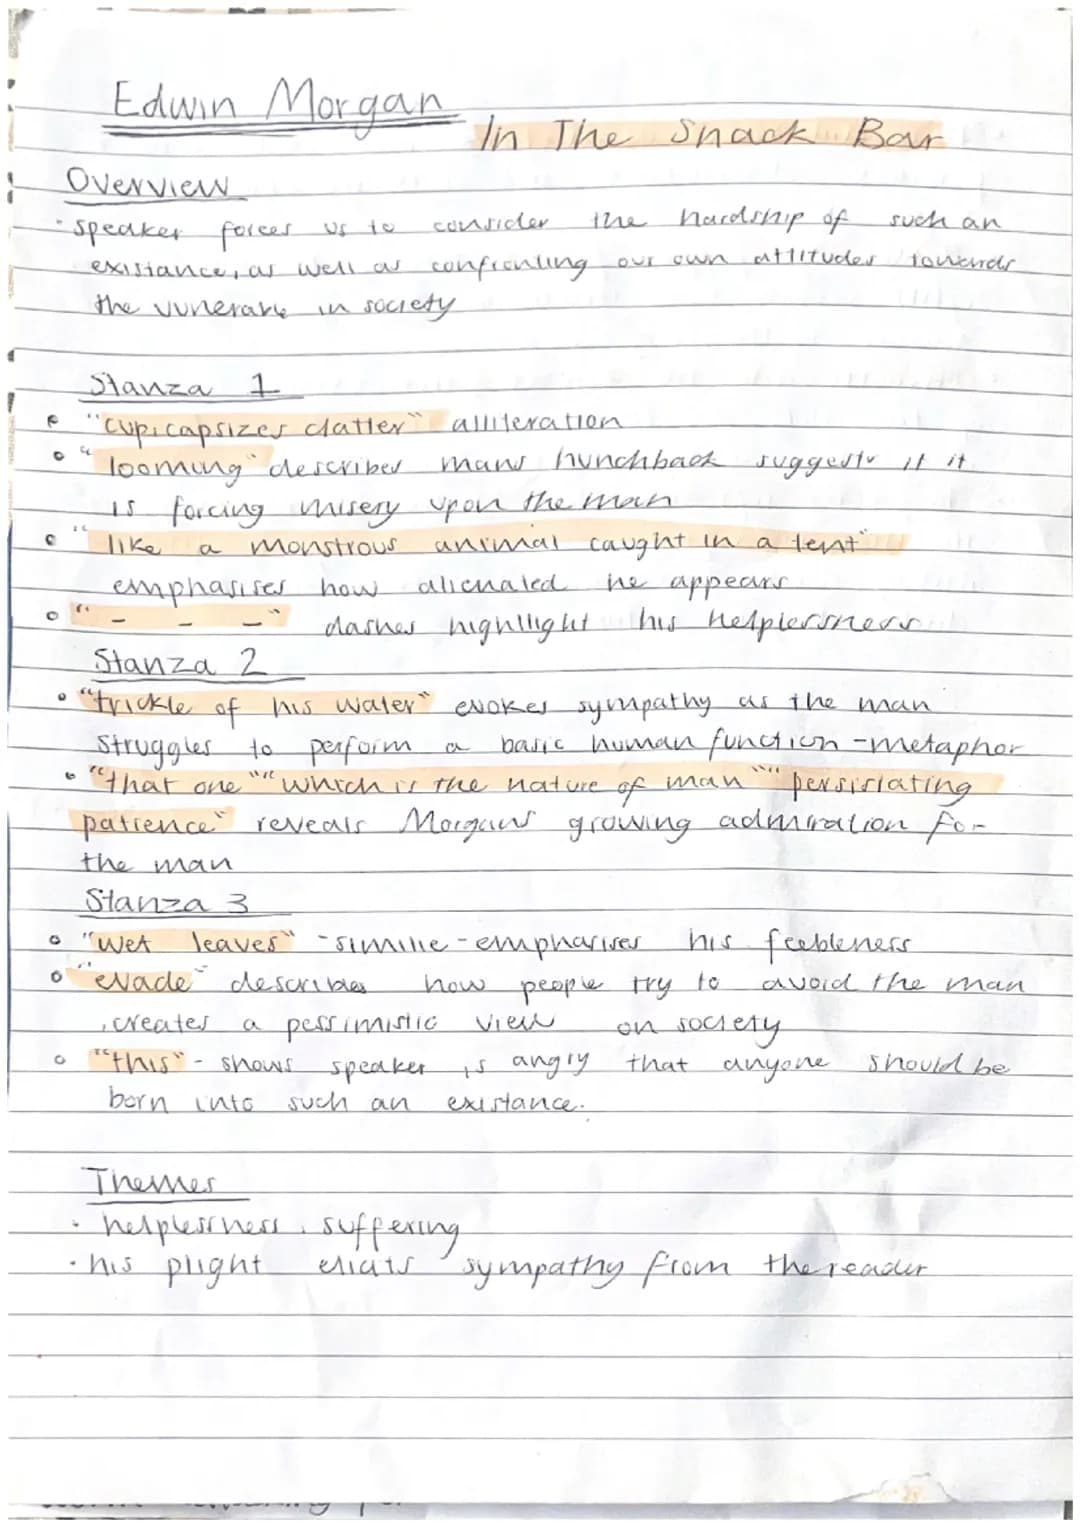 Edwin Morgan
In The Snack Bar
Overview
· speaker forces us to consider the hardship of such an
existance, as well as confronting our own attitudes towards
the vunerable in society
Stanza 1
"cup capsizes clatter" alliteration
"looming" describes mans hunchback suggests it it
is forcing misery upon the man
"like a monstrous animal caught in a tent"
emphasises how alienated he appears
" - - - " dashes highllight his helplessness
Stanza 2
"trickle of his water" evokes sympathy as the man
struggles to perform a basic human function - metaphor
"that one" "which is the nature of man" "persistating
patience" reveals Morgans growing admiration for
the man
Stanza 3
"wet leaves" - similie - emphasises his feebleness
"evade" describes how people try to avoid the man
, creates a pessimistic view on society
"this" - shows speaker is angry that anyone should be
born into such an existance.
Themes
· helplessness, suffering
· his plight elicits sympathy from the reader